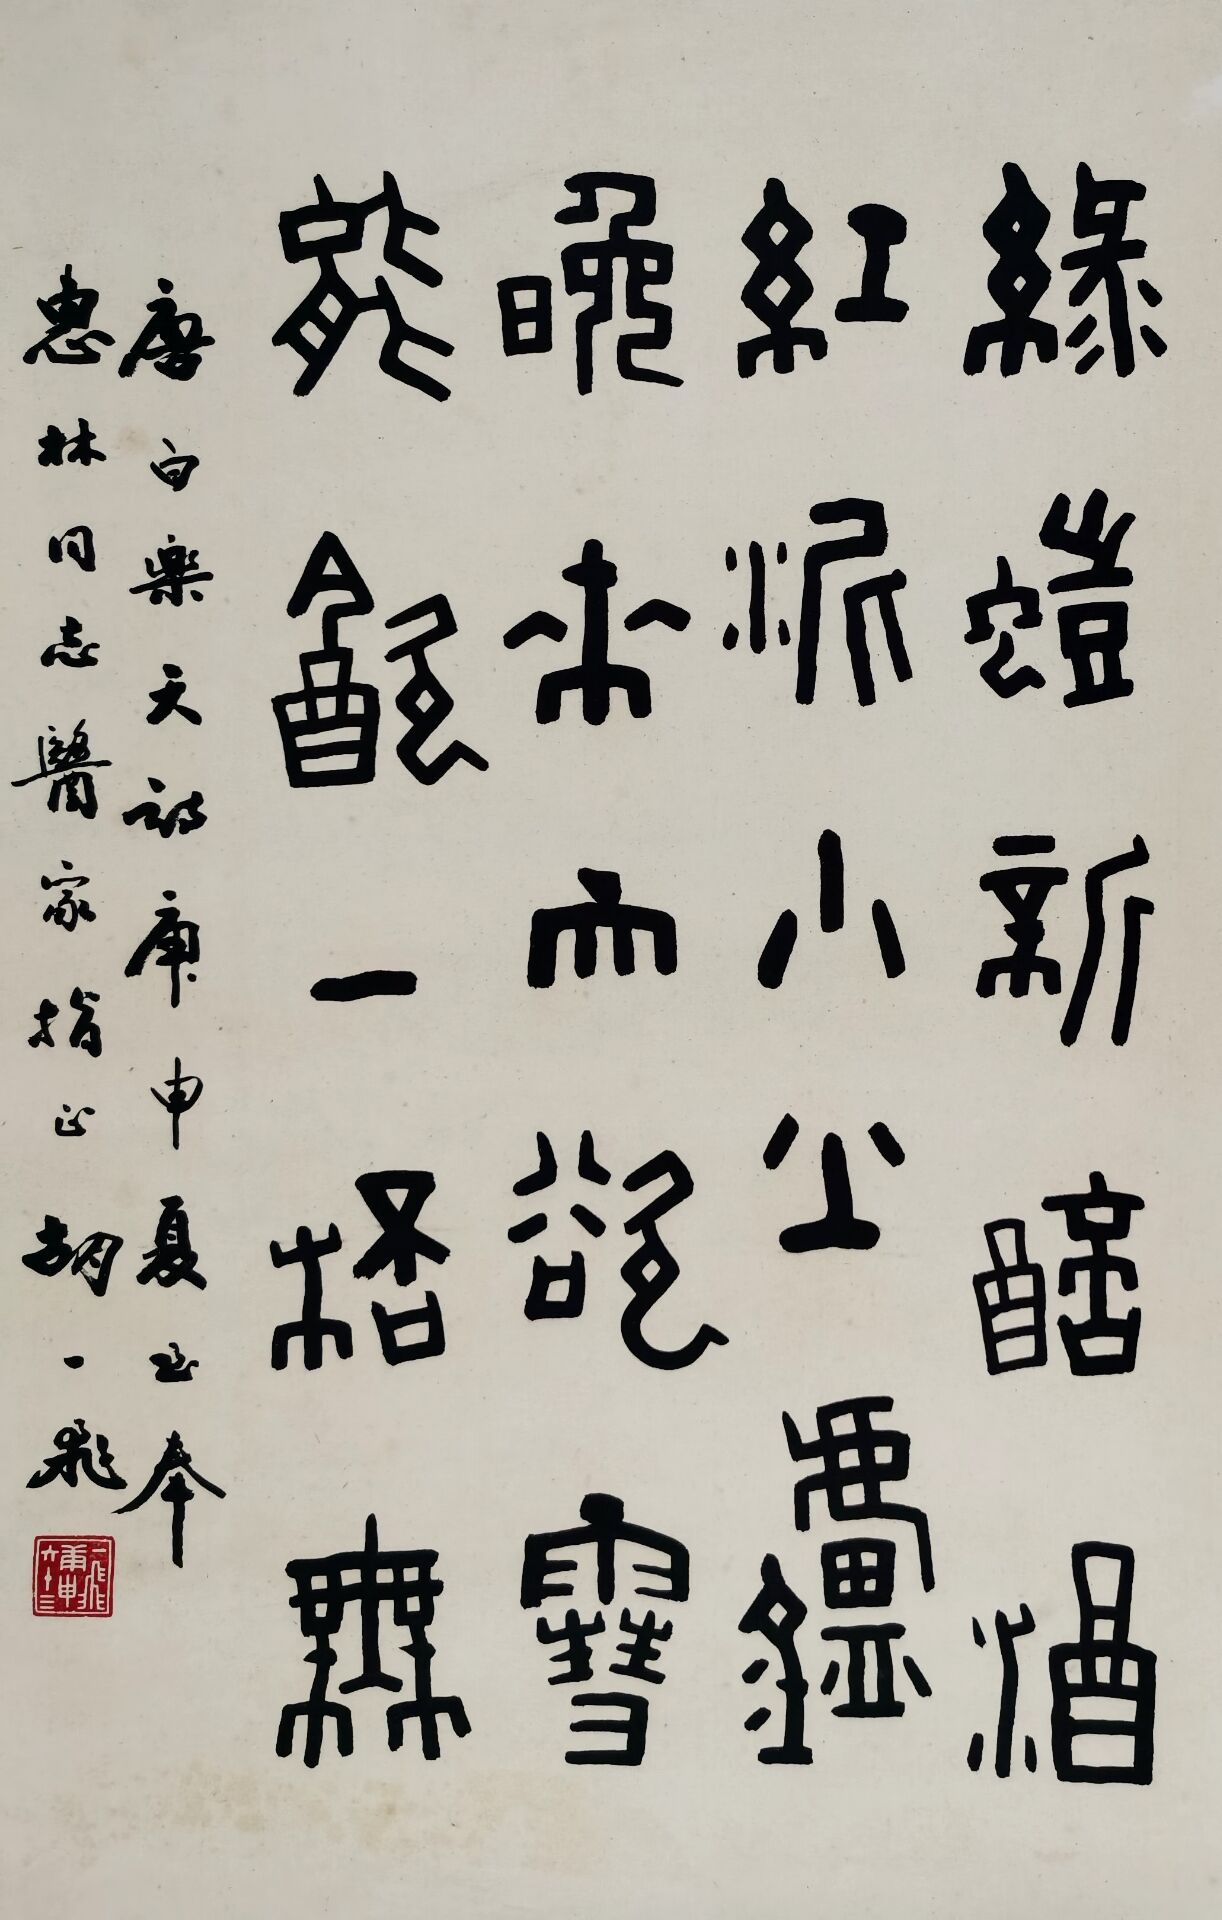 綠螘新醅酒
紅泥小火鑪
晚來天欲雪
能飲一桮無
唐白樂天詩庚申夏奉
惠林同志醫家指正 胡一飛
一飛庚申六十三